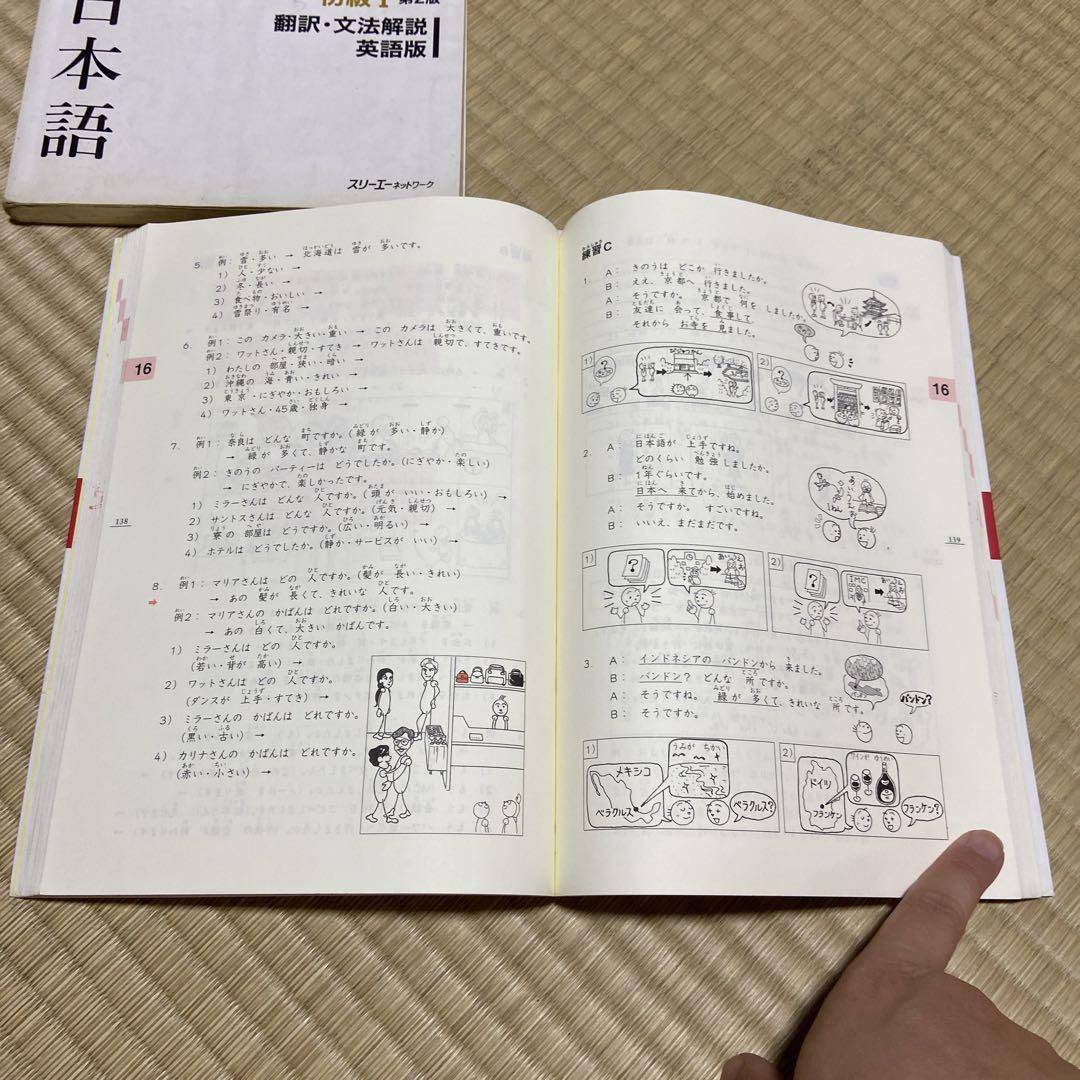 日本語
初級I 第2版
翻訳・文法解説
英語版
スリーエーネットワーク
16
138
5. 例：雪・多い → 北海道は 雪が 多いです。
1) 人・少ない →
2) 冬・長い →
3) 食べ物・おいしい →
4) 雪祭り・有名 →
6. 例1：この カメラ・大きい・重い → この カメラは 大きくて、重いです。
例2：ワットさん・親切・すてき → ワットさんは 親切で、すてきです。
1) わたしの 部屋・狭い・暗い →
2) 沖縄の 海・青い・きれい →
3) 東京・にぎやか・おもしろい →
4) ワットさん・45歳・独身 →
7. 例1：奈良は どんな 町ですか。(緑が 多い・静か)
→ 緑が 多くて、静かな 町です。
例2：きのうの パーティーは どうでしたか。(にぎやか・楽しい)
→ にぎやかで、楽しかったです。
1) ミラーさんは どんな 人ですか。(頭が いい・おもしろい) →
2) サントスさんは どんな 人ですか。(元気・親切) →
3) 寮の 部屋は どうですか。(広い・明るい) →
4) ホテルは どうでしたか。(静か・サービスが いい) →
8. 例1：マリアさんは どの 人ですか。(髪が 長い・きれい)
→ あの 髪が 長くて、きれいな 人です。
例2：マリアさんの かばんは どれですか。(白い・大きい)
→ あの 白くて、大きい かばんです。
1) ミラーさんは どの 人ですか。
(若い・背が 高い) →
2) ワットさんは どの 人ですか。
(ダンスが 上手・すてき) →
3) ミラーさんの かばんは どれですか。
(黒い・古い) →
4) カリナさんの かばんは どれですか。
(赤い・小さい) →
練習C
16
139
1. A： きのうは どこか 行きましたか。
B： ええ、京都へ 行きました。
A： そうですか。 京都で 何を しましたか。
B： 友達に 会って、食事して
それから お寺を 見ました。
1)
びじゅつかん
2)
2. A： 日本語が 上手ですね。
どのくらい 勉強しましたか。
B： 1年ぐらいです。
日本へ 来てから、始めました。
A： そうですか。 すごいですね。
B： いいえ、まだまだです。
あいうえお
1ねん
1)
あいうえ
2)
IMC
3. A： インドネシアの バンドンから 来ました。
B： バンドン？ どんな 所ですか。
A： そうですね。 緑が 多くて、きれいな 所です。
B： そうですか。
バンドン？
1)
メキシコ
ベラクルス
うみが ちかい
ベラクルス？
2)
ドイツ
フランケン
フランケン？